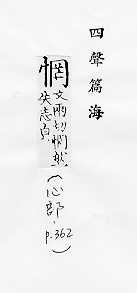 四聲篇海
惘
文兩切惘然
失志皃
(心部.
p.362)